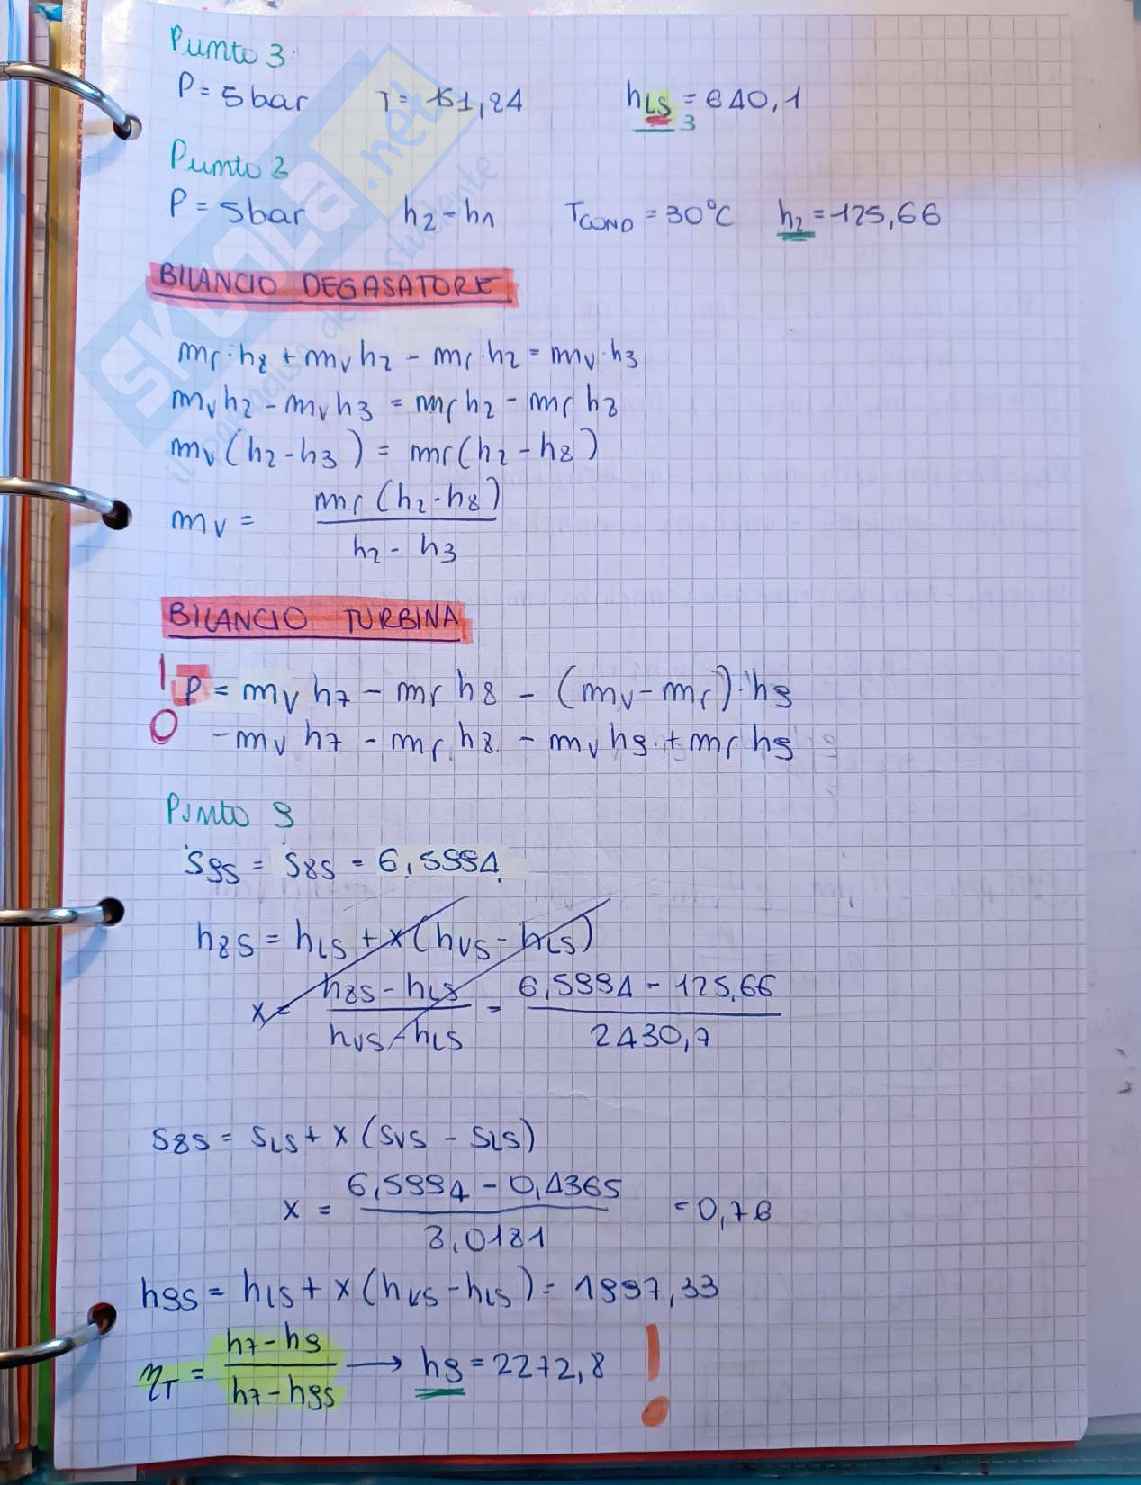 Punto 3
P = 5 bar T = 151,84 hLS3 = 640,1
Punto 2
P = 5 bar h2 - h1 TCOND = 30°C h2 = 125,66
BILANCIO DEGASATORE
mr · h8 + mv h2 - mr h2 = mv · h3
mv h2 - mv h3 = mr h2 - mr h8
mv (h2 - h3) = mr (h2 - h8)
mv = mr (h2 - h8) / h2 - h3
BILANCIO TURBINA
P = mv h7 - mr h8 - (mv - mr) · h9
- mv h7 - mr h8 - mv h9 + mr h9
Punto 9
S9S = S8S = 6,5994
h8S = hLS + x (hVS - hLS)
x = h8S - hLS / hVS - hLS = 6,5994 - 125,66 / 2430,7
S8S = SLS + x (SVS - SLS)
x = 6,5994 - 0,4365 / 8,0181 = 0,76
h9S = hLS + x (hVS - hLS) = 1997,33
ηT = h7 - h9 / h7 - h9S → h9 = 2272,8 !
SKUOLA.net